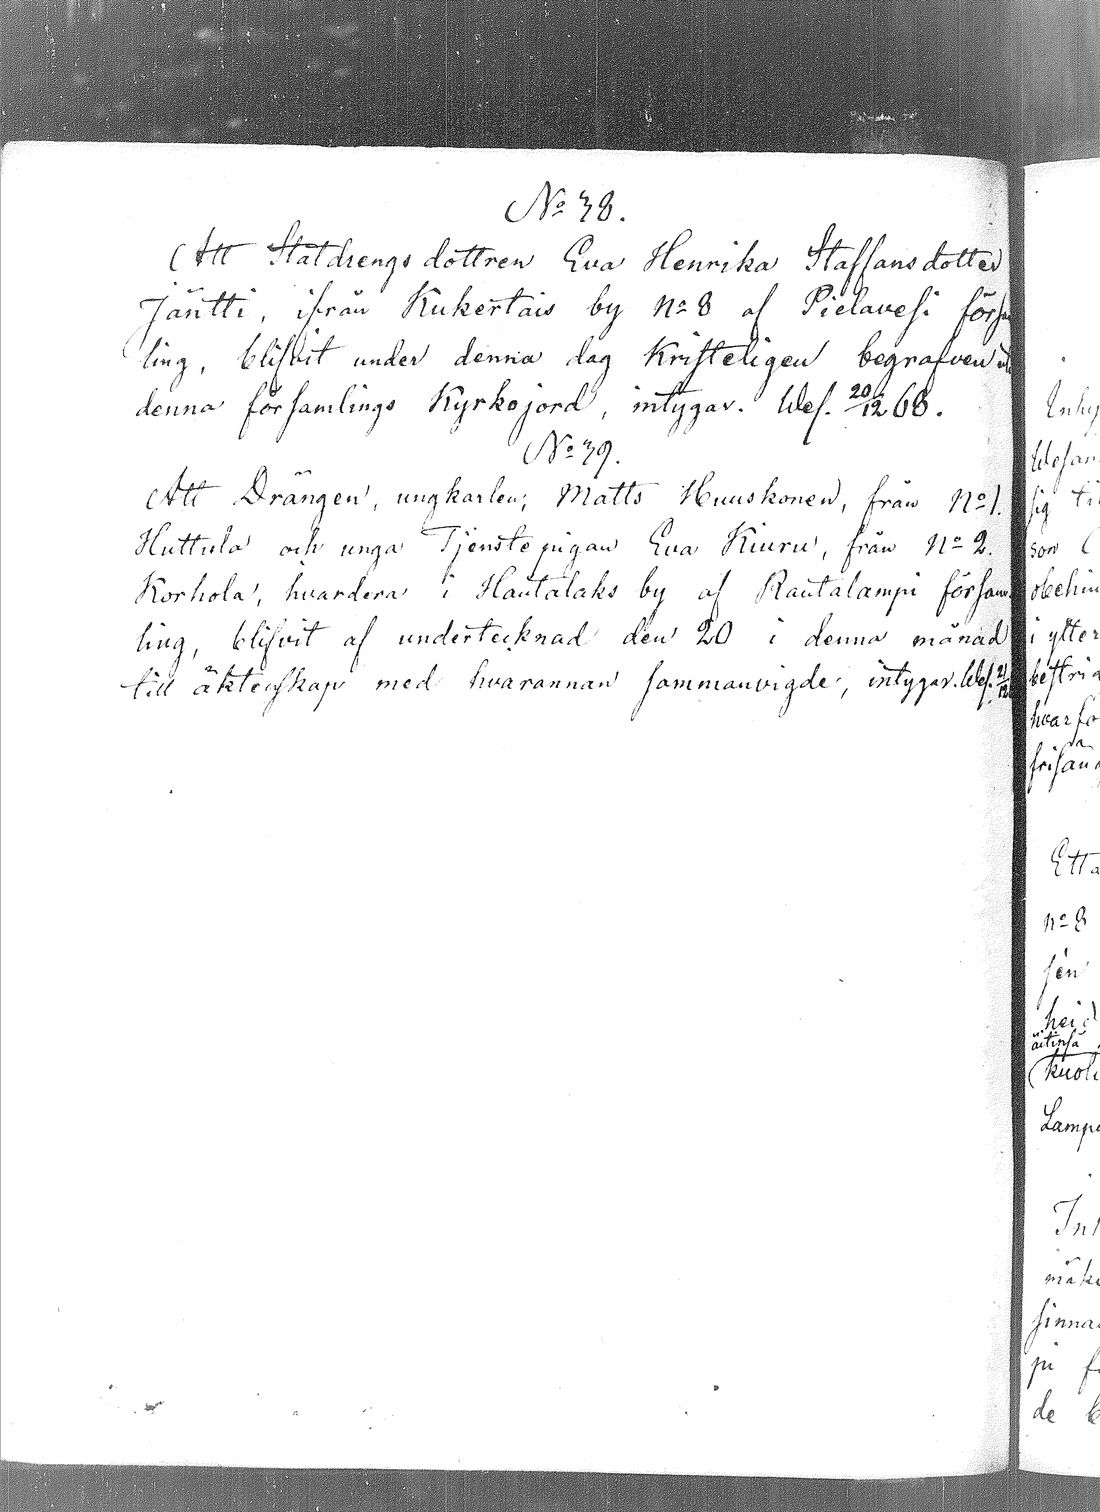 No 38.
Att Statdrengsdottren Eva Henrika Staffansdotter
Jäntti, ifrån Kukertais by No 8 af Pielavesi försam
ling, blifvit under denna dag Kristeligen begrafven
denna församlings Kyrkojord, intygar. Wes. 20/12 68.
No 39.
Att Drängen, ungkarlen, Matts Huuskonen, från No 1.
Huttula och unga Tjenstepigan Eva Kiuru, från No 2.
Korhola, hvardera i Hautalaks by af Rautalampi försam
ling, blifvit af undertecknad den 20 i denna månad
till äktenskap med hvarannan sammanvigde, intygar. Wes. 21/12
Inhy
Wesan
sig ti
son
obehin
i ytter
bestri
hvarfö
Etta
no 8
sen
hei
äitinsä
kuoli
Lamp
Int
mäk
sinna
pi f
de b